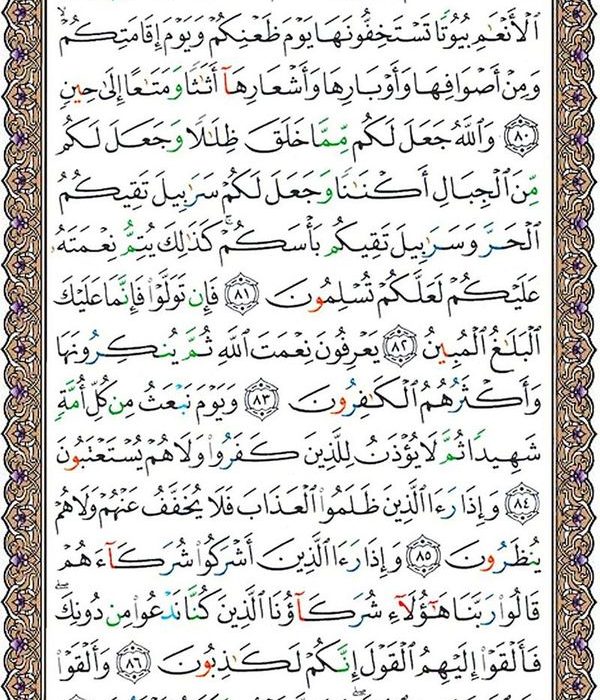 ٱلۡأَنۡعَٰمِ بُيُوتٗا تَسۡتَخِفُّونَهَا يَوۡمَ ظَعۡنِكُمۡ وَيَوۡمَ إِقَامَتِكُمۡ
وَمِنۡ أَصۡوَافِهَا وَأَوۡبَارِهَا وَأَشۡعَارِهَآ أَثَٰثٗا وَمَتَٰعًا إِلَىٰ حِينٖ
٨٠ وَٱللَّهُ جَعَلَ لَكُم مِّمَّا خَلَقَ ظِلَٰلٗا وَجَعَلَ لَكُم
مِّنَ ٱلۡجِبَالِ أَكۡنَٰنٗا وَجَعَلَ لَكُمۡ سَرَٰبِيلَ تَقِيكُمُ
ٱلۡحَرَّ وَسَرَٰبِيلَ تَقِيكُم بَأۡسَكُمۡۚ كَذَٰلِكَ يُتِمُّ نِعۡمَتَهُۥ
عَلَيۡكُمۡ لَعَلَّكُمۡ تُسۡلِمُونَ ٨١ فَإِن تَوَلَّوۡاْ فَإِنَّمَا عَلَيۡكَ
ٱلۡبَلَٰغُ ٱلۡمُبِينُ ٨٢ يَعۡرِفُونَ نِعۡمَتَ ٱللَّهِ ثُمَّ يُنكِرُونَهَا
وَأَكۡثَرُهُمُ ٱلۡكَٰفِرُونَ ٨٣ وَيَوۡمَ نَبۡعَثُ مِن كُلِّ أُمَّةٖ
شَهِيدٗا ثُمَّ لَا يُؤۡذَنُ لِلَّذِينَ كَفَرُواْ وَلَا هُمۡ يُسۡتَعۡتَبُونَ
٨٤ وَإِذَا رَءَا ٱلَّذِينَ ظَلَمُواْ ٱلۡعَذَابَ فَلَا يُخَفَّفُ عَنۡهُمۡ وَلَا هُمۡ
يُنظَرُونَ ٨٥ وَإِذَا رَءَا ٱلَّذِينَ أَشۡرَكُواْ شُرَكَآءَهُمۡ
قَالُواْ رَبَّنَا هَٰٓؤُلَآءِ شُرَكَآؤُنَا ٱلَّذِينَ كُنَّا نَدۡعُواْ مِن دُونِكَۖ
فَأَلۡقَوۡاْ إِلَيۡهِمُ ٱلۡقَوۡلَ إِنَّكُمۡ لَكَٰذِبُونَ ٨٦ وَأَلۡقَوۡاْ